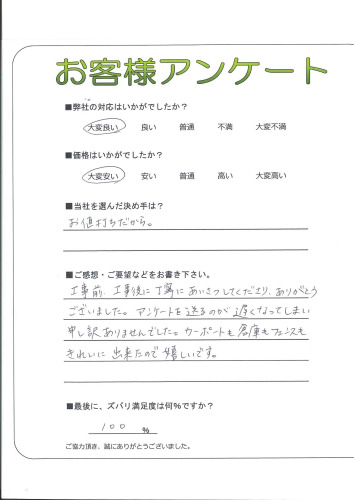 お客様アンケート
■弊社の対応はいかがでしたか？
大変良い 良い 普通 不満 大変不満
■価格はいかがでしたか？
大変安い 安い 普通 高い 大変高い
■当社を選んだ決め手は？
お値打ちだから。
■ご感想・ご要望などをお書き下さい。
工事前、工事後に丁寧にあいさつしてくださり、ありがとう
ございました。アンケートを送るのが遅くなってしまい
申し訳ありませんでした。カーポートも倉庫もフェンスも
きれいに出来たので嬉しいです。
■最後に、ズバリ満足度は何％ですか？
100 ％
ご協力頂き、誠にありがとうございました。